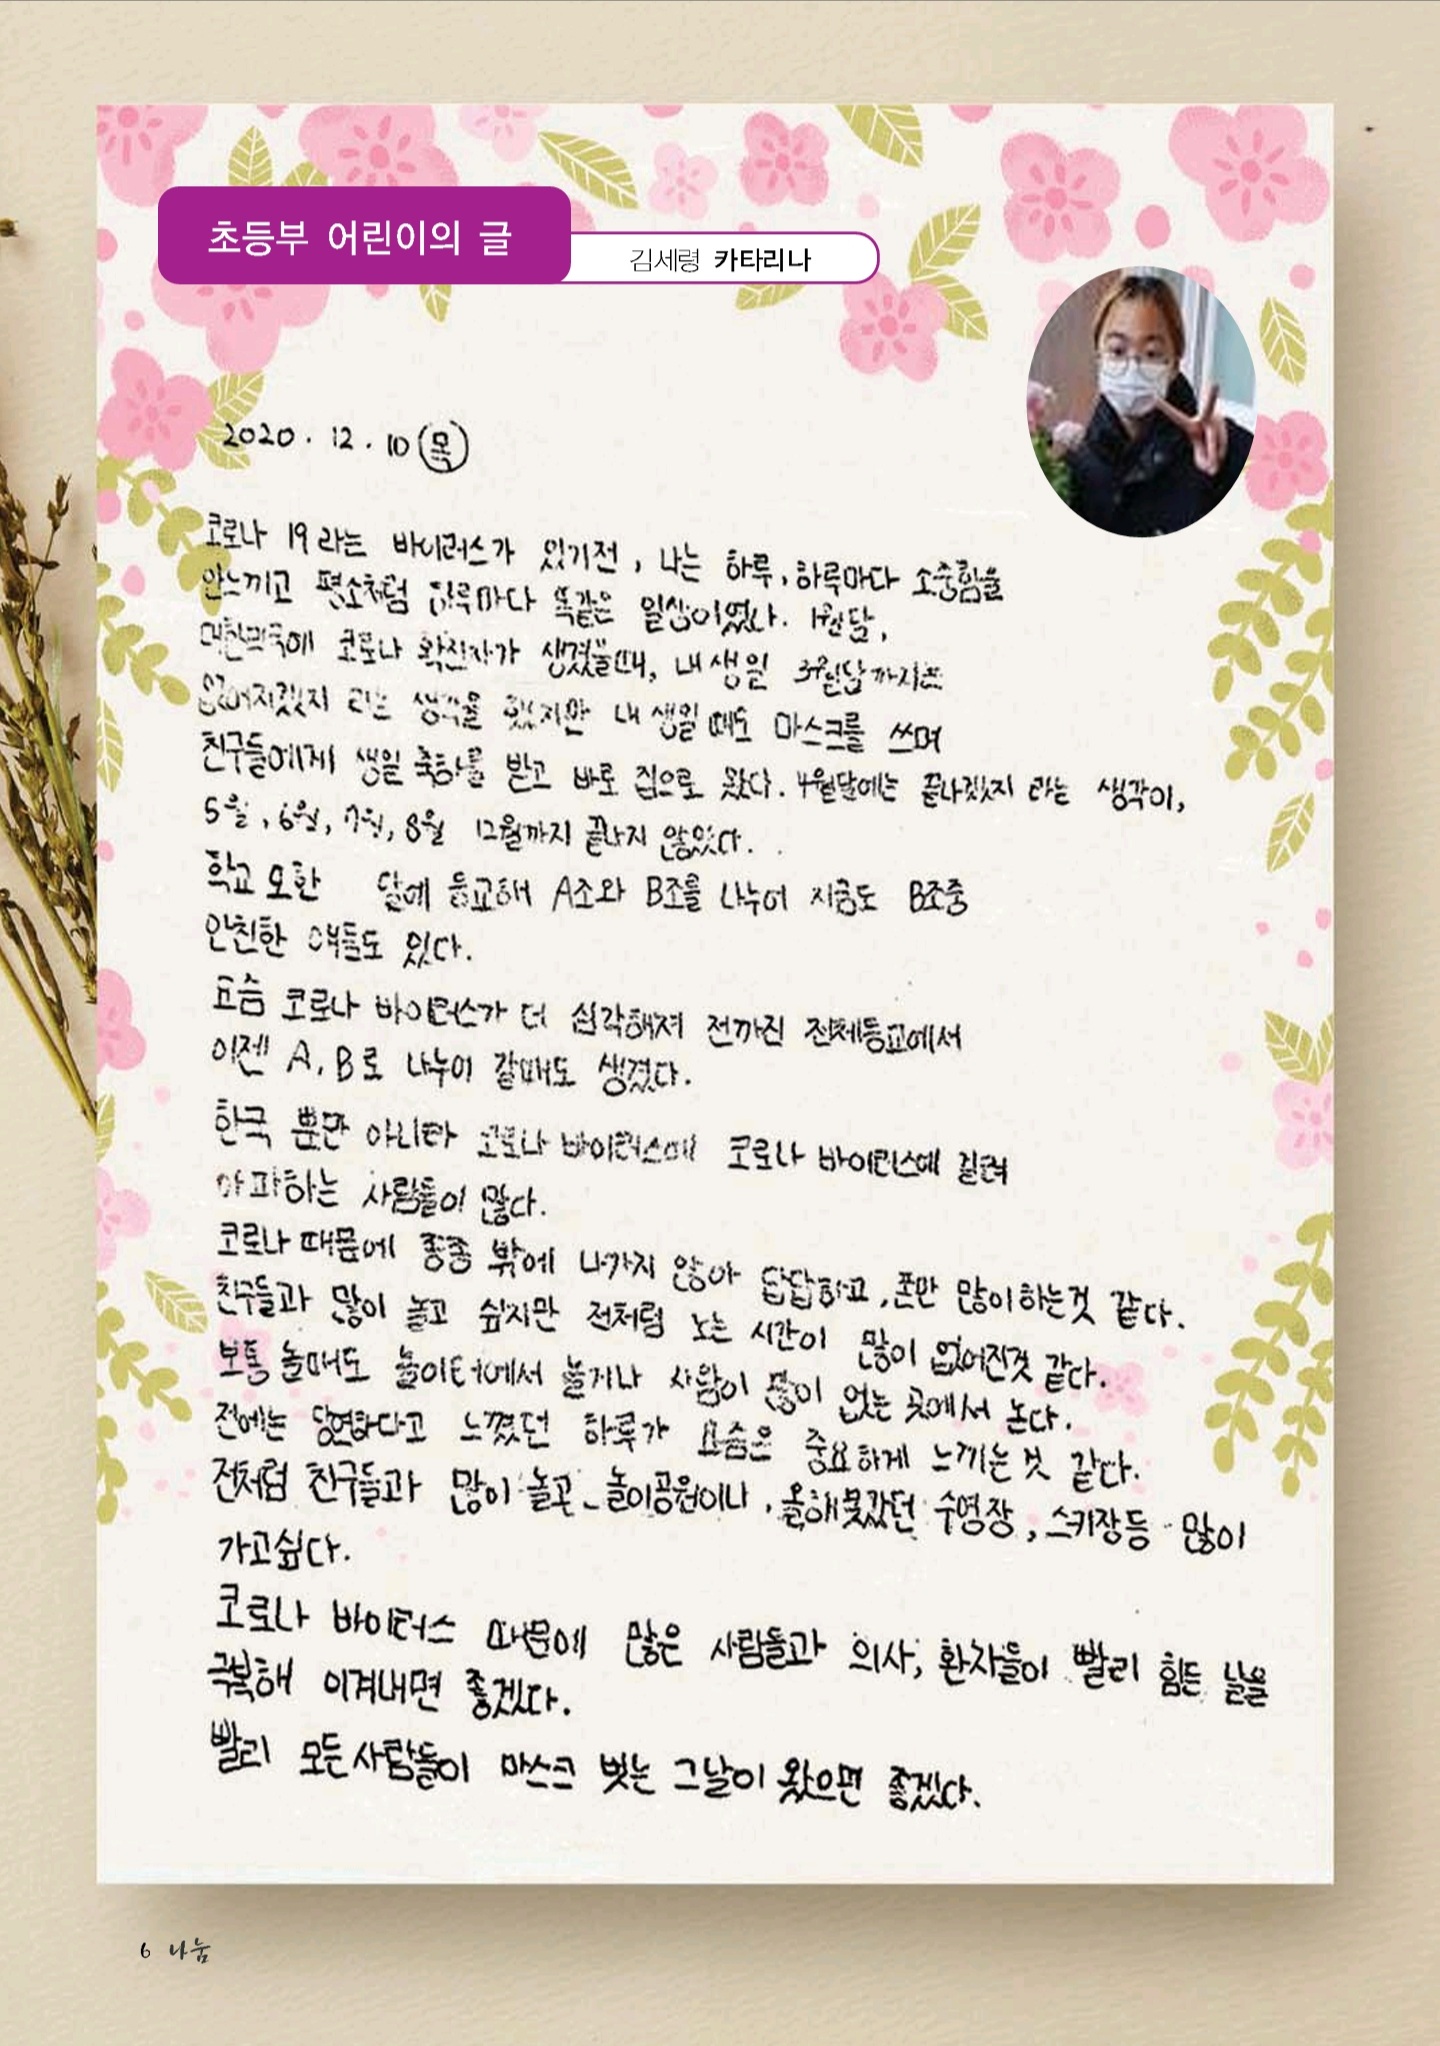 초등부 어린이의 글
김세령 카타리나
2020. 12. 10 (목)
코로나 19라는 바이러스가 있기전, 나는 하루, 하루마다 소중함을
안느끼고 평소처럼 하루마다 똑같은 일상이였다. 1월달,
대한민국에 코로나 확진자가 생겼을때, 내 생일 3월달까지는
없어지겠지 라는 생각을 했지만 내 생일 때도 마스크를 쓰며
친구들에게 생일 축하를 받고 바로 집으로 왔다. 4월달에는 끝나겠지 라는 생각이,
5월, 6월, 7월, 8월 12월까지 끝나지 않았다.
학교 또한 달에 등교해 A조와 B조를 나누어 지금도 B조중
안친한 애들도 있다.
요즘 코로나 바이러스가 더 심각해져 전까진 전체등교에서
이젠 A, B로 나누어 갈때도 생겼다.
한국 뿐만 아니라 코로나 바이러스에 코로나 바이러스에 걸려
아파하는 사람들이 많다.
코로나 때문에 종종 밖에 나가지 않아 답답하고, 폰만 많이하는것 같다.
친구들과 많이 놀고 싶지만 전처럼 노는 시간이 많이 없어진것 같다.
보통 놀때도 놀이터에서 놀거나 사람이 많이 없는 곳에서 논다.
전에는 당연하다고 느꼈던 하루가 요즘은 중요하게 느끼는것 같다.
전처럼 친구들과 많이 놀곤 놀이공원이나, 올해못갔던 수영장, 스키장등 많이
가고싶다.
코로나 바이러스 때문에 많은 사람들과 의사, 환자들이 빨리 힘든 날을
극복해 이겨내면 좋겠다.
빨리 모든사람들이 마스크 벗는 그날이 왔으면 좋겠다.
6 나눔